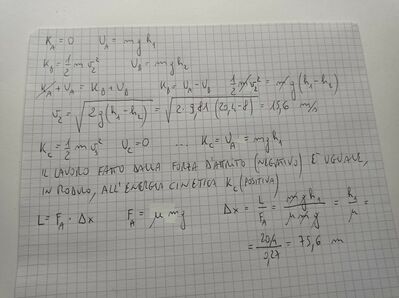 K_A = 0 U_A = m g h_1
K_B = 1/2 m v_2^2 U_B = m g h_2
K_A + U_A = K_B + U_B K_B = U_A - U_B 1/2 m v_2^2 = m g (h_1 - h_2)
v_2 = √2 g (h_1 - h_2) = √2 · 9,81 (20,4 - 8) = 15,6 m/s
K_C = 1/2 m v_3^2 U_C = 0 ... K_C = U_A = m g h_1
IL LAVORO FATTO DALLA FORZA D'ATTRITO (NEGATIVO) E' UGUALE,
IN MODULO, ALL'ENERGIA CINETICA K_C (POSITIVA)
L = F_A · Δx F_A = μ m g Δx = L/F_A = m g h_1/μ m g = h_1/μ =
= 20,4/0,27 = 75,6 m